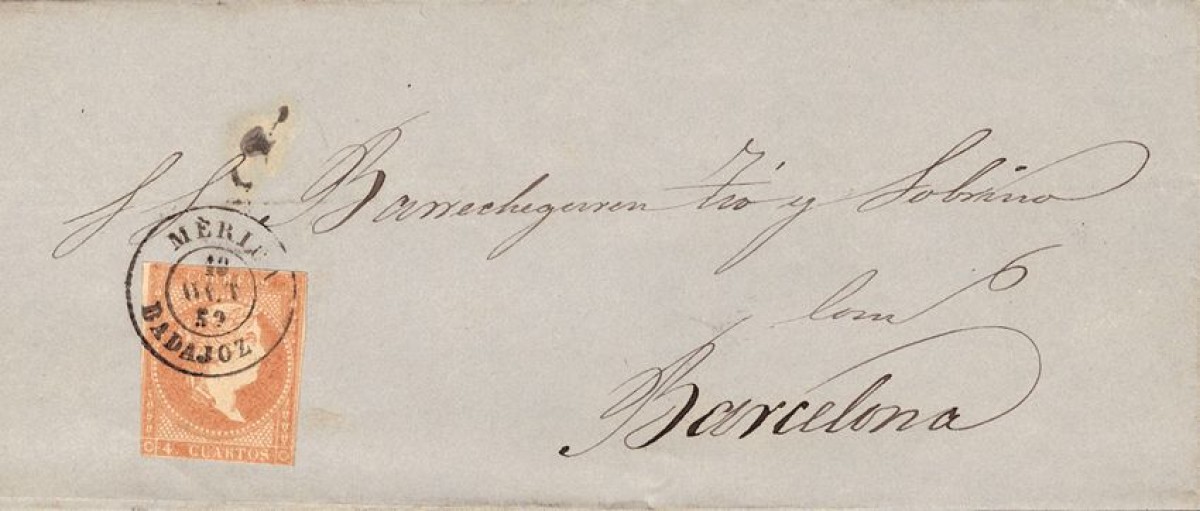 S S. Barrechegurren Tio y Sobrino
Com
Barcelona
MÉRIDA
10
OCT
59
BADAJOZ
CORREOS
4 CUARTOS